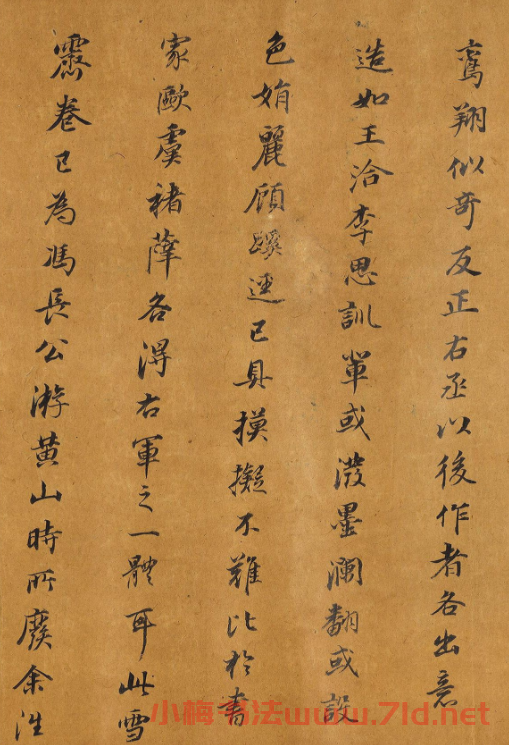 鸞翔似奇反正右丞以後作者各出意
造如王洽李思訓輩或潑墨瀾翻或設
色娟麗顧蹊逕已具模擬不難比於書
家歐虞褚薛各得右軍之一體耳此雪
霽卷已為馮長公游黃山時所廢余往
小梅书法www.7ld.net